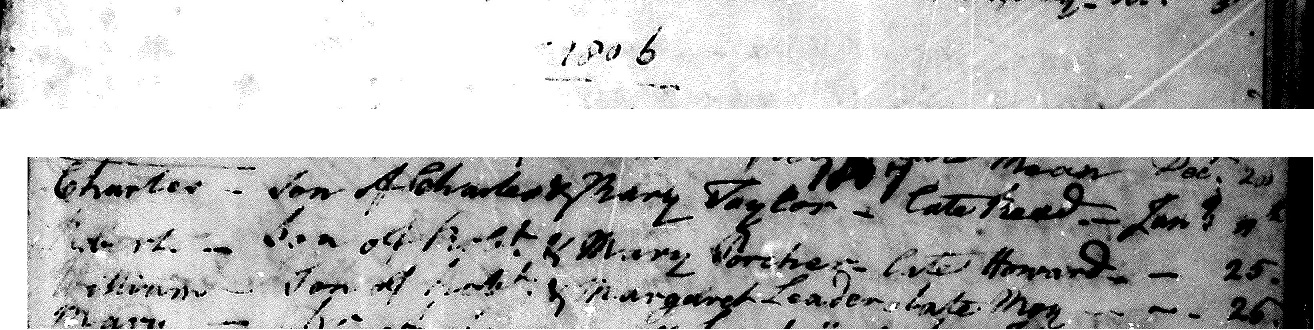 1806
late Mean Dec. 20
1807
Charles - Son of Charles & Mary Taylor - late Read - Jany 11th
Robert - Son of Robt. & Mary Porcher - late Howard - 25.
William - Son of Robt. & Margaret Leader late May - - 26.
Mary -